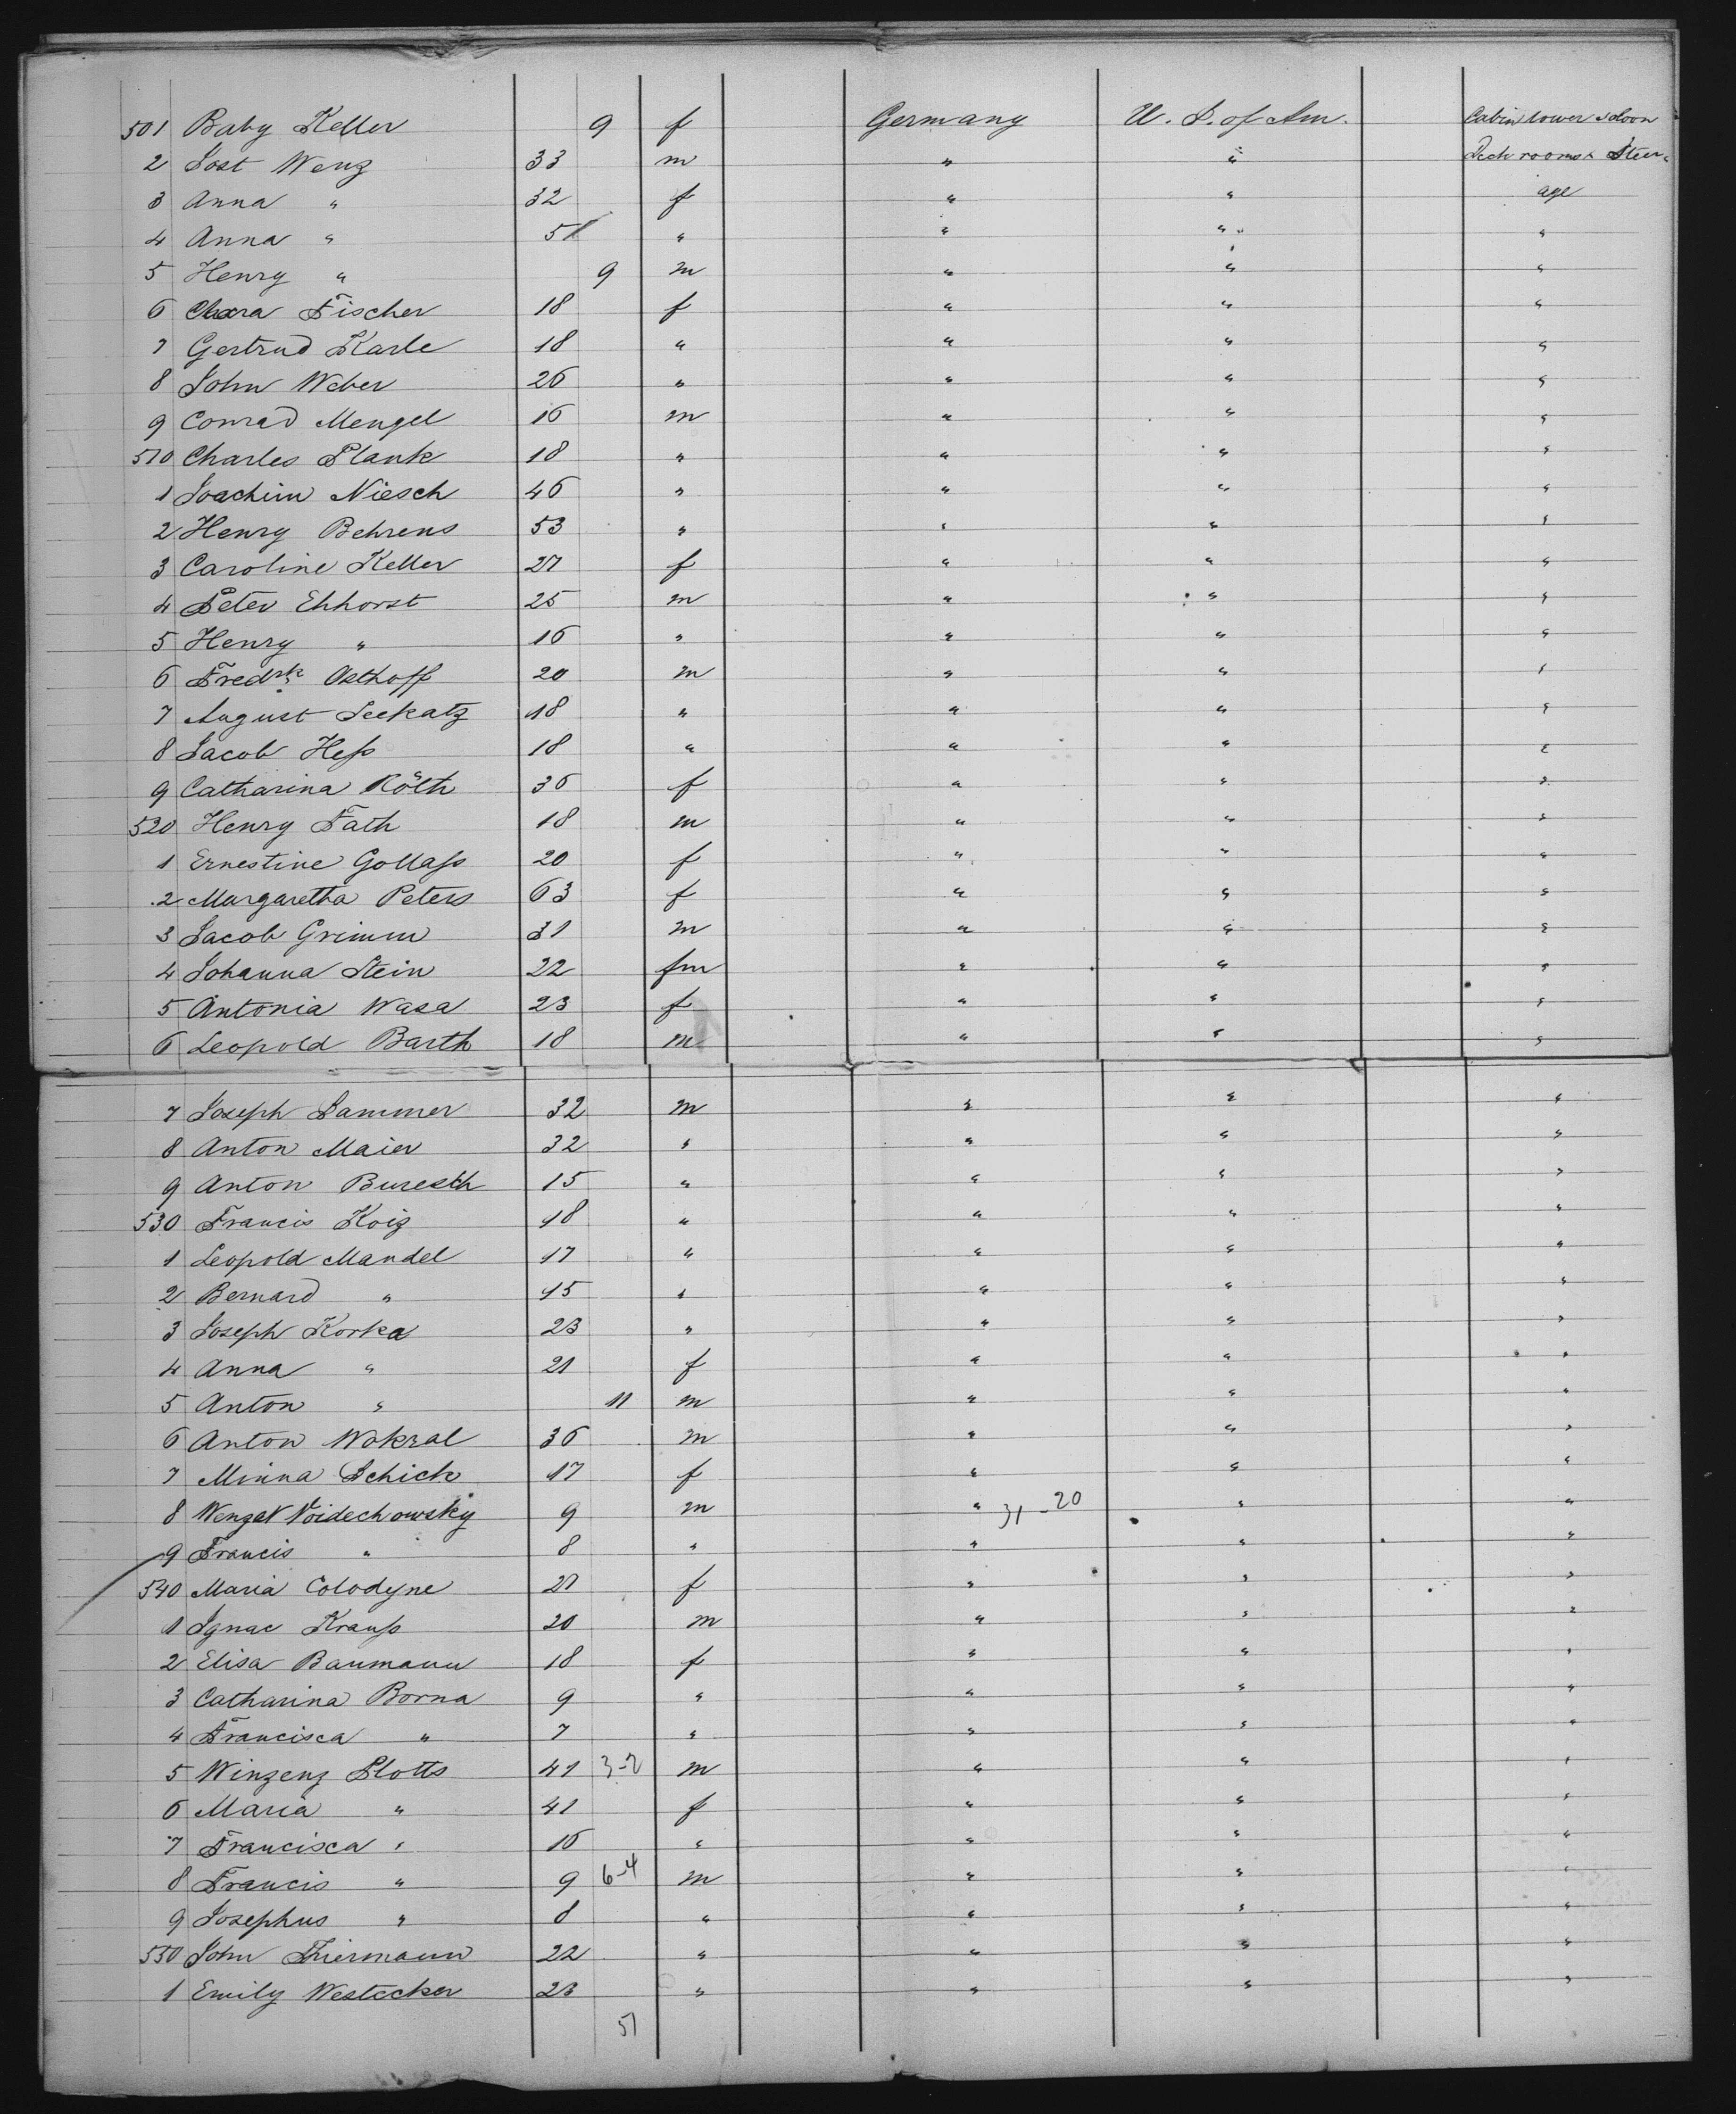 501 Baby Keller 9 f Germany U. S. of Am. Cabin lower saloon
2 Jost Weng 33 m " " Deck rooms & Steer-
3 Anna " 32 f " " age
4 Anna " 5 " " " "
5 Henry " 9 m " " "
6 Clara Fischer 18 f " " "
7 Gertrud Karle 18 " " " "
8 John Weber 26 " " " "
9 Conrad Mengel 16 m " " "
510 Charles Plank 18 " " " "
1 Joachim Niesch 46 " " " "
2 Henry Behrens 53 " " " "
3 Caroline Keller 27 f " " "
4 Peter Ehhorst 25 m " " "
5 Henry " 16 " " " "
6 Fredrk Osthoff 20 m " " "
7 August Seekatz 18 " " " "
8 Jacob Heß 18 " " " "
9 Catharina Röth 36 f " " "
520 Henry Fath 18 m " " "
1 Ernestine Gollaß 20 f " " "
2 Margaretha Peters 63 f " " "
3 Jacob Grimm 31 m " " "
4 Johanna Stein 22 fm " " "
5 Antonia Wasa 23 f " " "
6 Leopold Barth 18 m " " "
7 Joseph Sammer 32 m " " "
8 Anton Maier 32 " " " "
9 Anton Buresch 15 " " " "
530 Francis Koig 18 " " " "
1 Leopold Mandel 17 " " " "
2 Bernard " 15 " " " "
3 Joseph Korka 23 " " " "
4 Anna " 21 f " " "
5 Anton " 11 m " " "
6 Anton Wokral 36 m " " "
7 Minna Schick 17 f " " "
8 Wenzel Voidechowsky 9 m " 31-20 " "
9 Francis " 8 " " " "
540 Maria Colodyne 27 f " " "
1 Ignac Krauß 20 m " " "
2 Elisa Baumann 18 f " " "
3 Catharina Borna 9 " " " "
4 Francisca " 7 " " " "
5 Winzenz Plotts 41 3-2 m " " "
6 Maria " 41 f " " "
7 Francisca " 16 " " " "
8 Francis " 9 6-4 m " " "
9 Josephus " 8 " " " "
550 John Thiermann 22 " " " "
1 Emily Westecker 23 " " " "
51